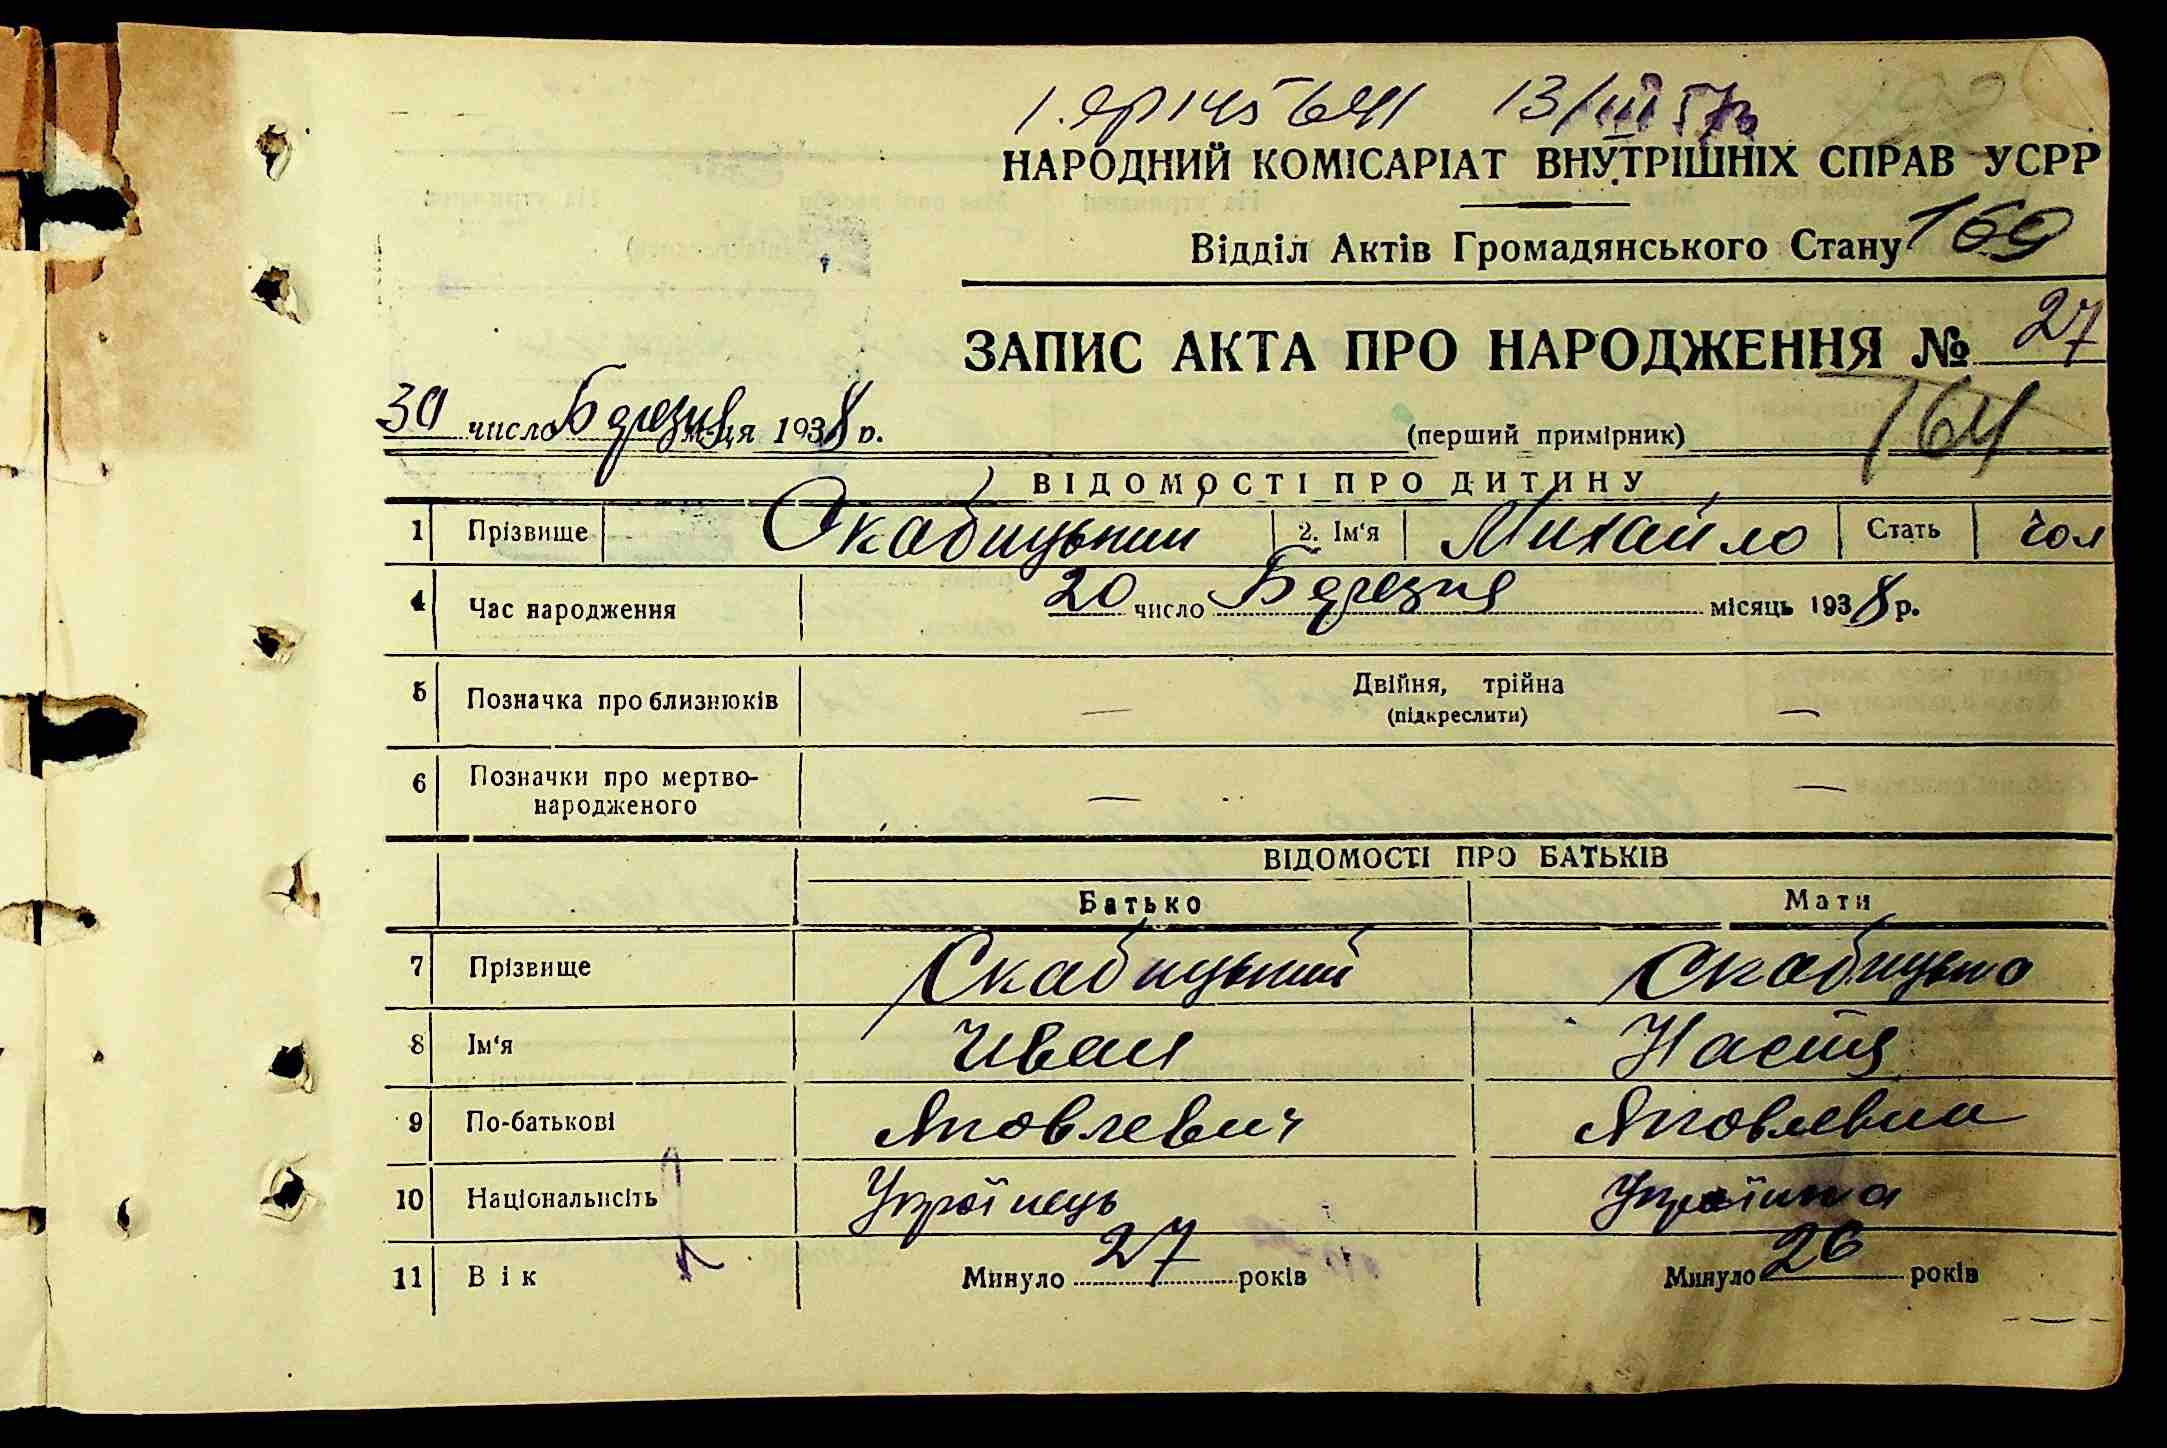 1. ЯР 145641 13/III 57р
НАРОДНИЙ КОМІСАРІАТ ВНУТРІШНІХ СПРАВ УСРР
Відділ Актів Громадянського Стану 169
ЗАПИС АКТА ПРО НАРОДЖЕННЯ № 27
30 число Березня м-ця 1938 р.
(перший примірник) 164
ВІДОМОСТІ ПРО ДИТИНУ
1 Прізвище Скабицький 2. Ім'я Михайло Стать Чол
4 Час народження 20 число Березня місяць 1938 р.
5 Позначка про близнюків — Двійня, трійна —
(підкреслити)
6 Позначки про мертво-
народженого — —
ВІДОМОСТІ ПРО БАТЬКІВ
Батько Мати
7 Прізвище Скабицький Скабицька
8 Ім'я Иван Настя
9 По-батькові Яковлевич Яковлевна
10 Національність Українець Українка
11 Вік Минуло 27 років Минуло 26 років